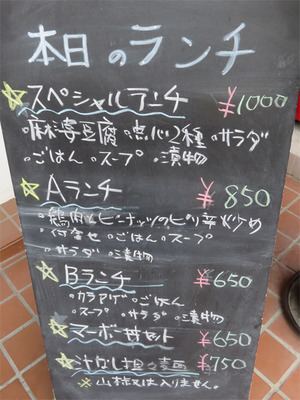 本日のランチ
☆スペシャルランチ ¥1000
・麻婆豆腐・点心2種・サラダ
・ごはん・スープ・漬物
☆Aランチ ¥850
・鶏肉とピーナッツのピリ辛炒め
・ごはん・スープ
・サラダ・漬物
☆Bランチ ¥650
・カラアゲ・ごはん
・スープ・サラダ・漬物
☆マーボー丼セット ¥650
☆汁なし担々麺 ¥750
※山椒又は入りません。